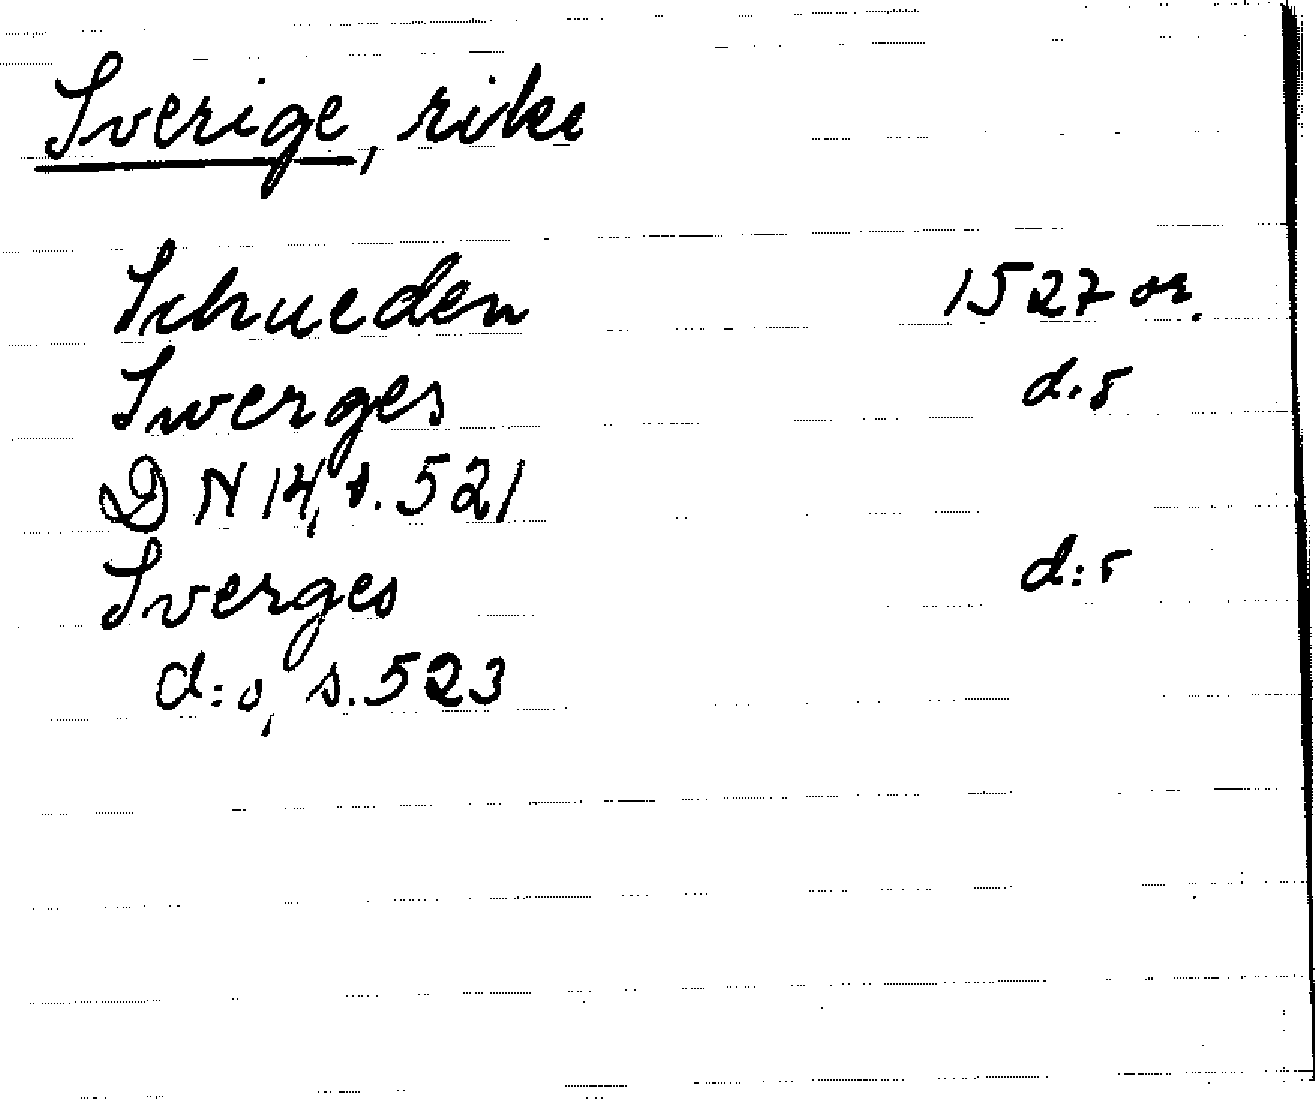 Sverige, rike
Schueden 1527 or.
Swerges d:o
DN 14, s. 521
Sverges d:o
d:o, s. 523